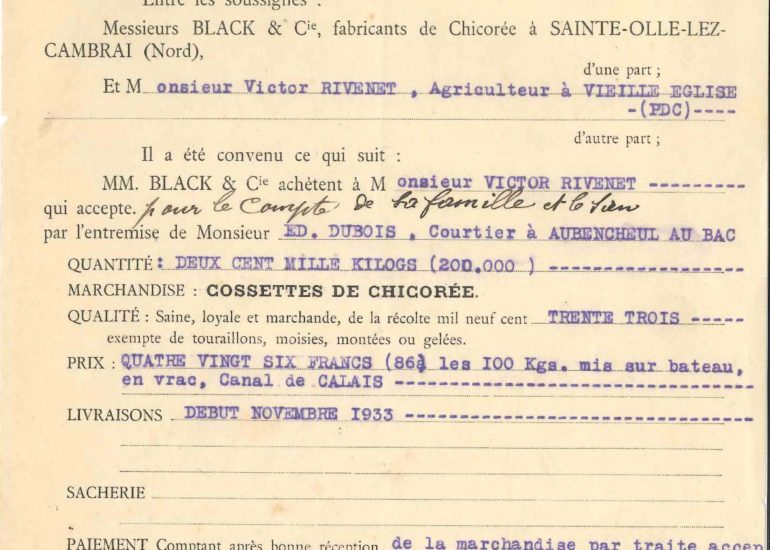 Entre les soussignés :
Messieurs BLACK & Cie, fabricants de Chicorée à SAINTE-OLLE-LEZ-
CAMBRAI (Nord),
d'une part ;
Et M onsieur Victor RIVENET , Agriculteur à VIEILLE EGLISE
-(PDC)----
d'autre part ;
Il a été convenu ce qui suit :
MM. BLACK & Cie achètent à M onsieur VICTOR RIVENET ---------
qui accepte. pour le compte de sa famille et le sien
par l'entremise de Monsieur ED. DUBOIS , Courtier à AUBENCHEUL AU BAC
QUANTITÉ : DEUX CENT MILLE KILOGS (200.000 ) -------------------
MARCHANDISE : COSSETTES DE CHICORÉE.
QUALITÉ : Saine, loyale et marchande, de la récolte mil neuf cent TRENTE TROIS -----
exempte de touraillons, moisies, montées ou gelées.
PRIX : QUATRE VINGT SIX FRANCS (86) les I00 Kgs. mis sur bateau,
en vrac, Canal de CALAIS -------------------------------
LIVRAISONS DEBUT NOVEMBRE I933 ------------------------------
SACHERIE
PAIEMENT Comptant après bonne réception de la marchandise par traite accep